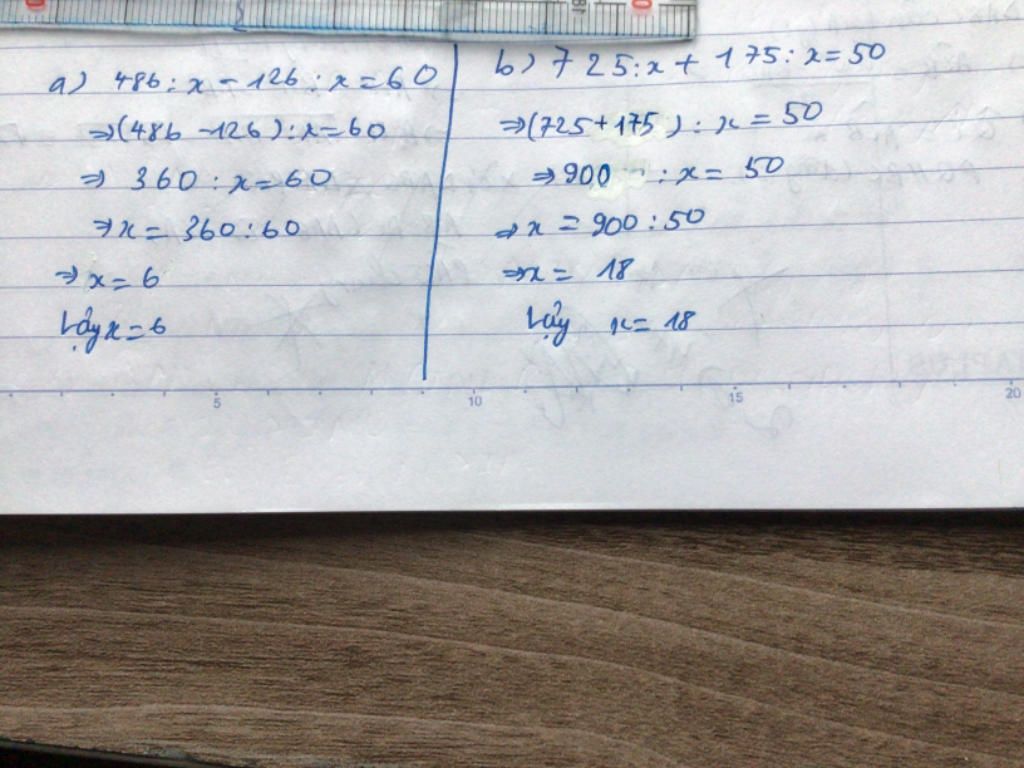 a) 486 : x - 126 : x = 60
⇒ (486 - 126) : x = 60
⇒ 360 : x = 60
⇒ x = 360 : 60
⇒ x = 6
Vậy x = 6
b) 725 : x + 175 : x = 50
⇒ (725 + 175) : x = 50
⇒ 900 : x = 50
⇒ x = 900 : 50
⇒ x = 18
Vậy x = 18
5 10 15 20